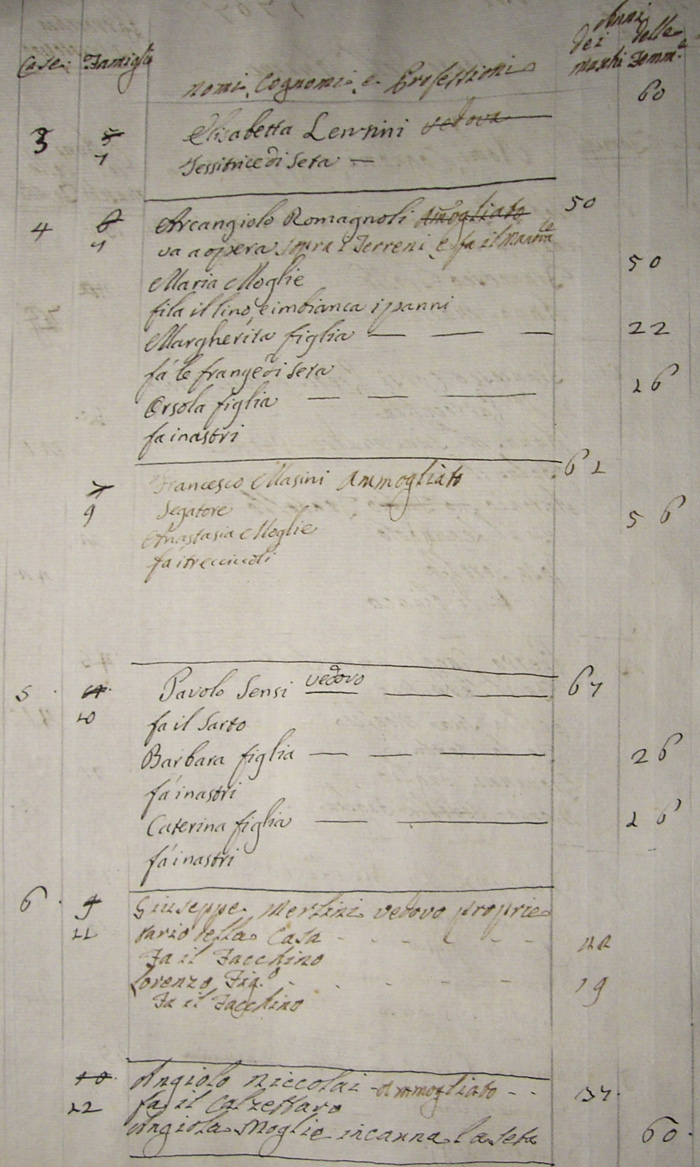 Case. Famiglie nomi, Cognomi e Professioni anni dei maschi delle Femm.e
60
3 5 Elisabetta Lensini vedova
7 Tessitrice di Seta
4 6 Arcangiolo Romagnoli Amogliato 50
va a opera sopra i Terreni, e fa il
Maria Moglie 50
fila il lino, e imbianca i panni
Margherita figlia 22
fá le frange di seta
Orsola figlia 16
fa i nastri
7 Francesco Masini Ammogliato 61
9 Segatore
Anastasia Moglie 56
fá i treccioli
5 Pavolo Sensi vedovo 67
10 fa il Sarto
Barbara figlia 26
fá i nastri
Caterina figlia 16
fá i nastri
6 9 Giuseppe Merlini vedovo proprie
11 tario della Casa
Fa il Facchino
Lorenzo Fig.o 19
Fa il Facchino
10 Angiolo Niccolai Ammogliato 37
12 fa il Calzettaro
Angiola Moglie incanna la seta 60